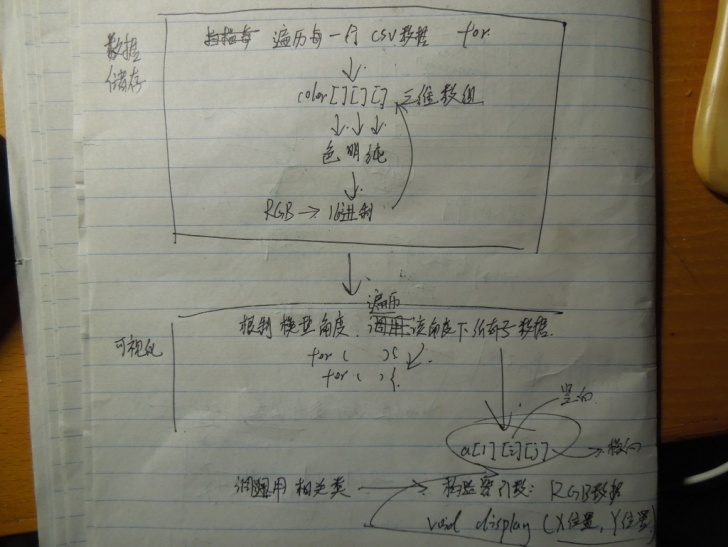 数据
储存
遍历每一个CSV数据 for
color[][][] 三维数组
色 明 纯
RGB → 16进制
可视化
遍历
根制模型角度. 调用该角度下所有子数据.
for( ){
for( ){
竖向
a[1][i][j] 横向
调用相关类 → 构造器引数: RGB数据
void display (X位置, Y位置)